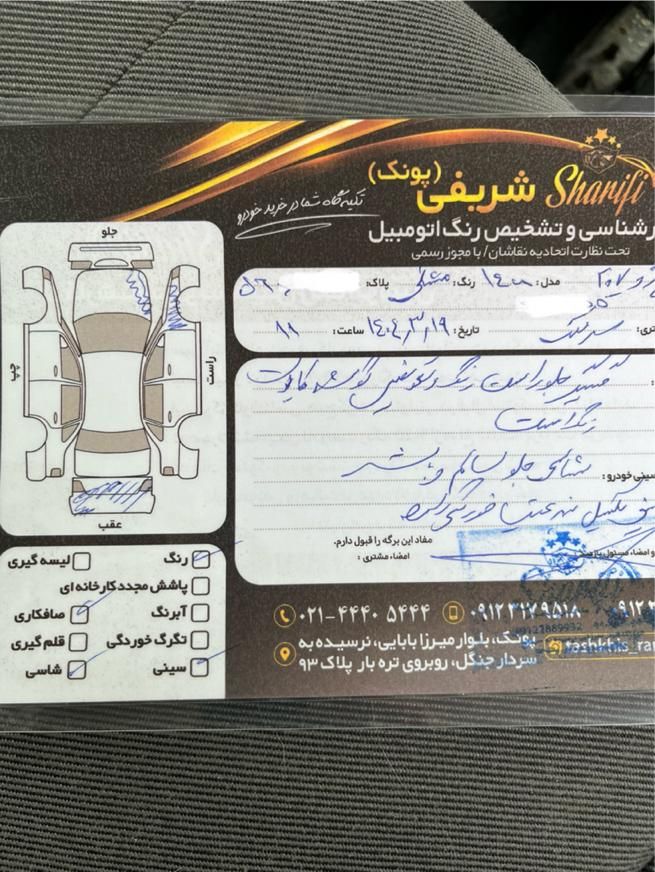 Sharifi
شریفی (پونک)
تکیه گاه شما در خرید خودرو
رشناسی و تشخیص رنگ اتومبیل
تحت نظارت اتحادیه نقاشان/ با مجوز رسمی
۲۰۷ مدل: رنگ: مشکی پلاک:
تری: تاریخ: ۱۴۰۴٫۳٫۱۹ ساعت: ۱۱
گلگیر جلو راست رنگ و تعویض گوشه کاپوت
رنگ است
سینی خودرو: شاسی جلو سالم و
مفاد این برگه را قبول دارم.
و امضاء مسئول بازدید
امضاء مشتری:
جلو
راست
چپ
عقب
رنگ
لیسه گیری
پاشش مجدد کارخانه ای
آبرنگ
صافکاری
تگرگ خوردگی
قلم گیری
سینی
شاسی
۰۲۱-۴۴۴۰ ۵۴۴۴
۰۹۱۲ ۳۱۷ ۹۵۱۸
پونک، بلوار میرزا بابایی، نرسیده به
سردار جنگل، روبروی تره بار پلاک ۹۳